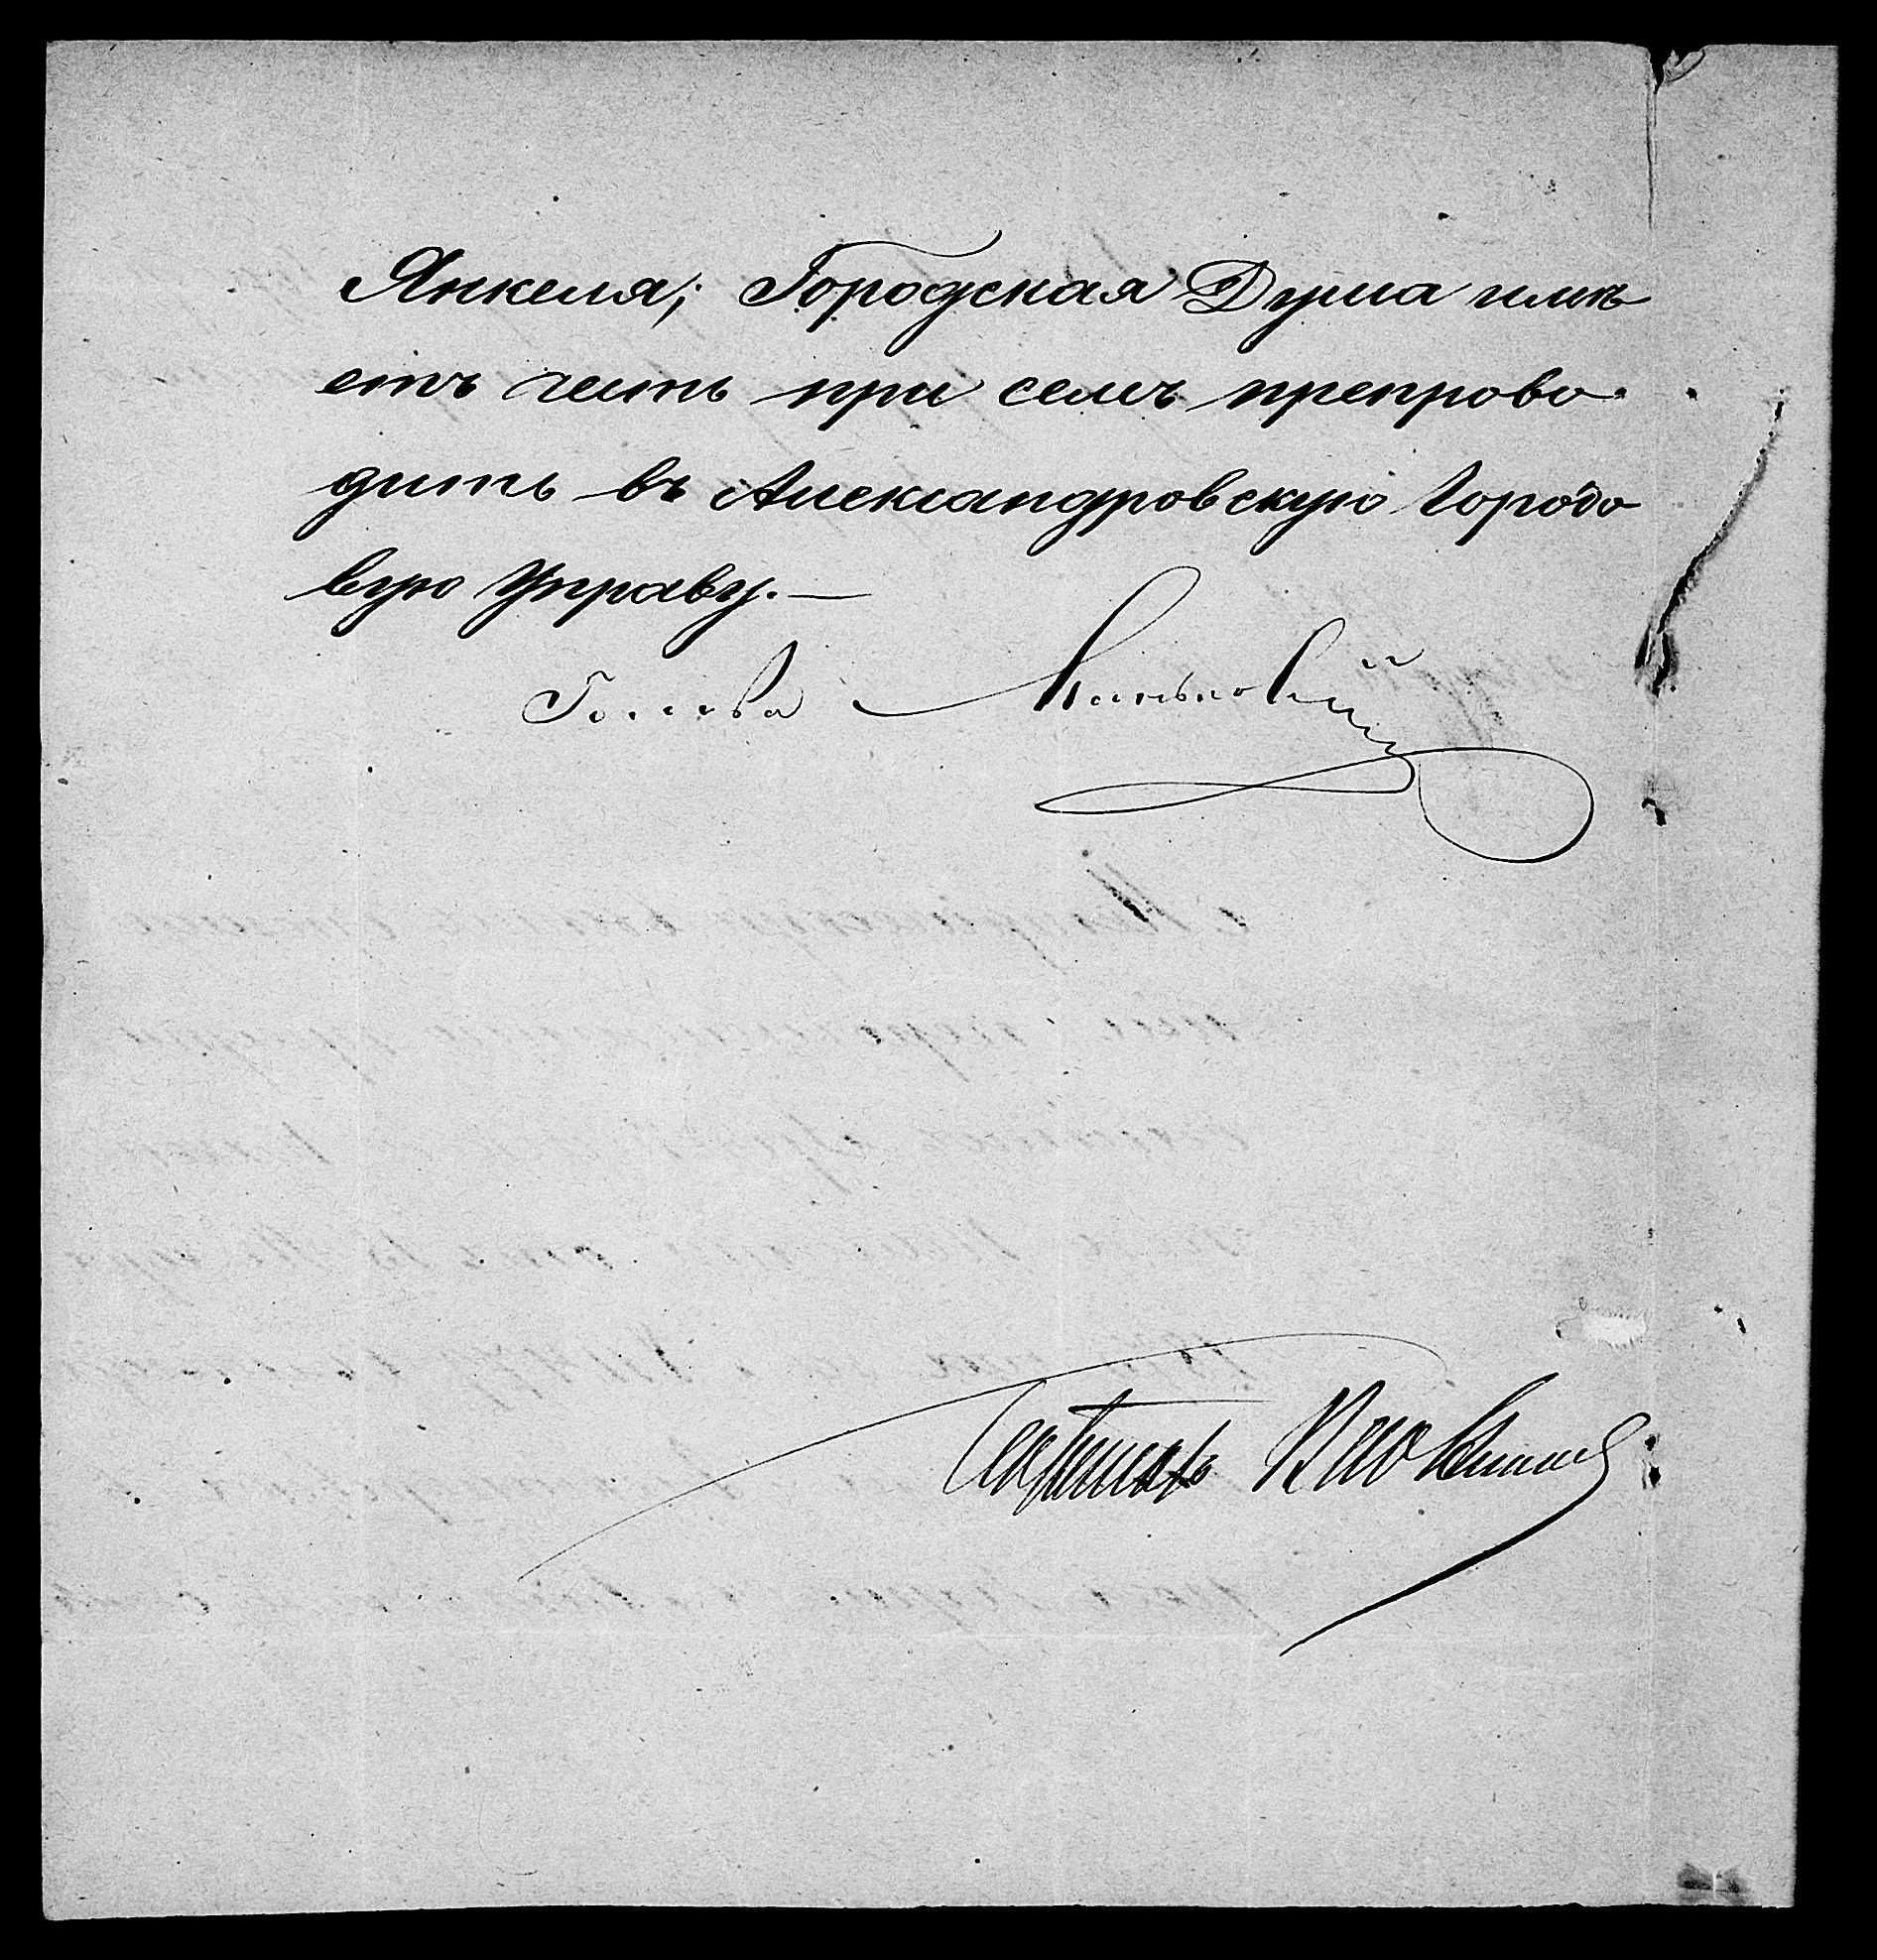 Янкеля; Городская Дума имѣ
етъ честь при семъ препрово
дить въ Александровскую Городо
вую Управу.—
Голова
Секретарь